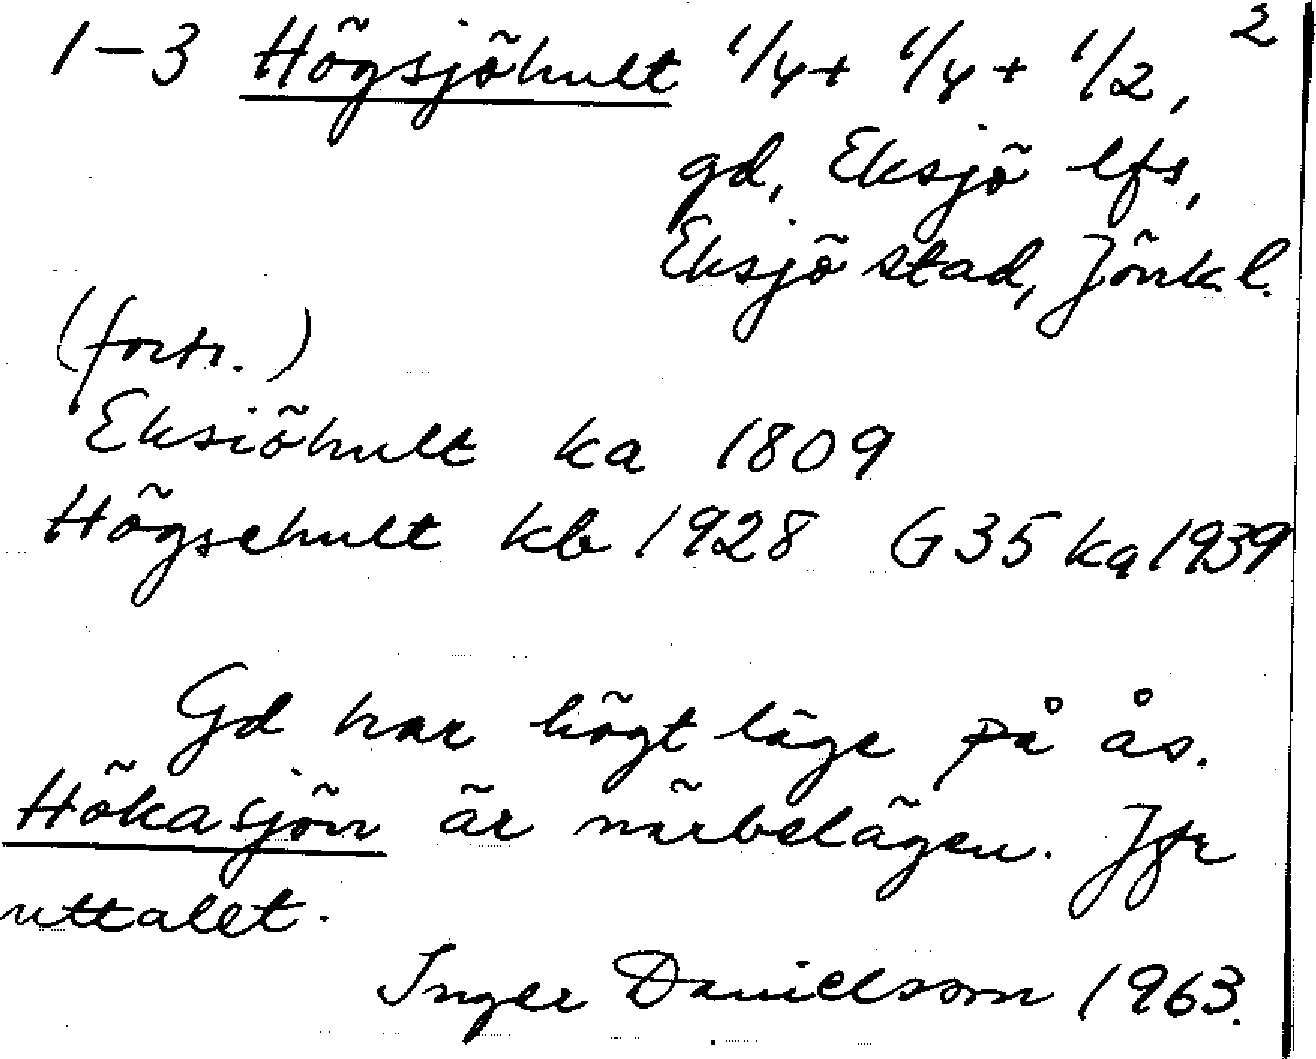 2
1-3 Högsjöhult 1/4+ 1/4+ 1/2,
gd, Eksjö lfs,
Eksjö stad, Jönk.l.
(forts.)
Eksiöhult ka 1809
Högsehult kb 1928 G35 ka 1939
Gd har högt läge på ås.
Hökasjön är närbelägen. Jfr
uttalet.
Inger Danielsson 1963.